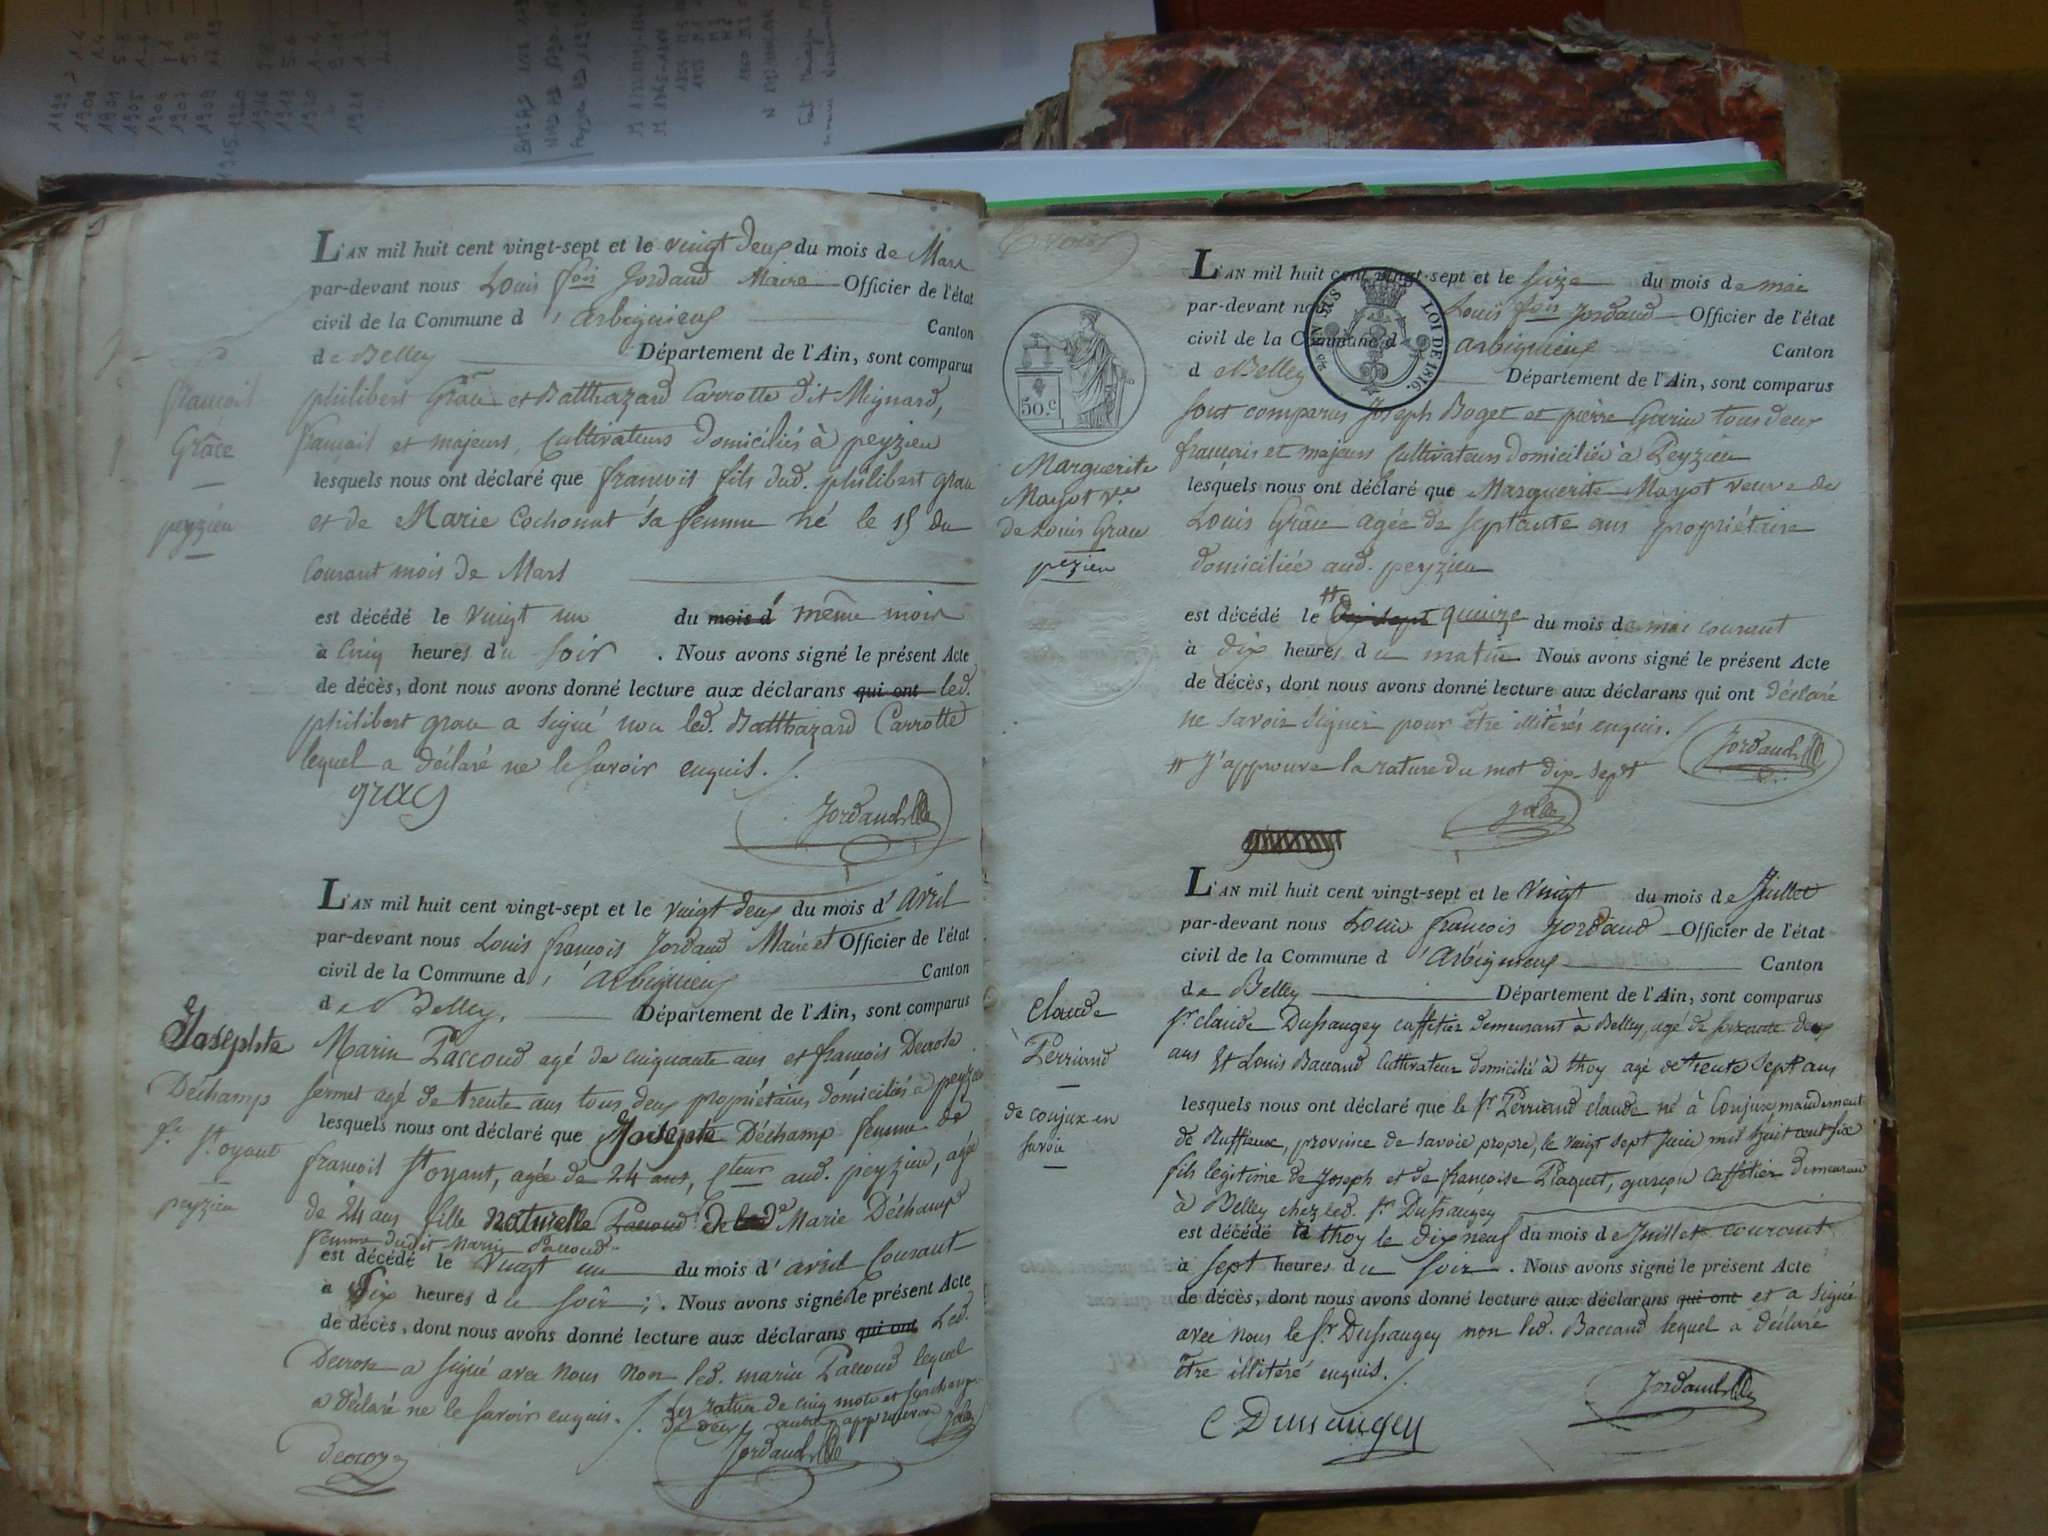 L'AN mil huit cent vingt-sept et le vingt deux du mois de Mars
par-devant nous Louis fois Jordand Maire Officier de l'état
civil de la Commune d'arbignieux Canton
de Belley Département de l'Ain, sont comparus
philibert Grâce et Batthazard Carrotte dit Mignard,
francais et majeurs, Cultivateurs domiciliés à peyzieu
lesquels nous ont déclaré que francois fils dud. philibert grace
et de Marie Cochonat sa femme né le 15 du
Courant mois de Mars
est décédé le vingt un du mois d même mois
à Cinq heures du soir . Nous avons signé le présent Acte
de décès, dont nous avons donné lecture aux déclarans qui ont led.
philibert grace a signé non led. Batthazard Carrotte
lequel a déclaré ne le savoir enquis.
Jordand
françois
Grâce
peyzieu
L'AN mil huit cent vingt-sept et le vingt deux du mois d'avril
par-devant nous Louis françois Jordand Maire et Officier de l'état
civil de la Commune d'arbignieux Canton
de Belley, Département de l'Ain, sont comparus
Marin Paccoud agé de cinquante ans et françois Decrose
fermet agé de trente ans tous deux propriétaires domiciliés à peyzieu
lesquels nous ont déclaré que Josephte Déchamp femme de
francois agée de 24 ans, aud. peyzieu, agée
de 24 ans fille naturelle Paccoud de Marie Déchamp
femme dudit Marin Paccoud
est décédé le vingt un du mois d'avril Courant
à dix heures du soir ; . Nous avons signé le présent Acte
de décès, dont nous avons donné lecture aux déclarans qui ont Led.
Decrose a signé avec nous non led. marin Paccoud lequel
a déclaré ne le savoir enquis.
Les rature de cinq mots et surcharge
de deux autres approuvées
Jordand
Josephte
Déchamp
peyzieu
50.c
LOI DE 1816.
L'AN mil huit cent vingt-sept et le seize du mois de mai
par-devant nous Louis fois Jordand Officier de l'état
civil de la Commune d arbignieux Canton
d Belley Département de l'Ain, sont comparus
sont comparus Joseph Boget et pierre Guerin tous deux
françois et majeurs Cultivateurs domiciliés à Peyzieu
lesquels nous ont déclaré que Marguerite Mayot veuve de
Louis Grâce agée de septante ans propriétaire
domiciliée aud. peyzieu
est décédé le dix sept quinze du mois de mai courant
à dix heures du matin Nous avons signé le présent Acte
de décès, dont nous avons donné lecture aux déclarans qui ont déclaré
ne savoir signer pour être illitérés enquis.
J'approuve la rature du mot dix-sept
Jordand
Marguerite
Mayot ve
de Louis Grace
pezieu
L'AN mil huit cent vingt-sept et le vingt du mois de Juillet
par-devant nous Louis francois Jordand Officier de l'état
civil de la Commune d'Arbignieux Canton
de Belley Département de l'Ain, sont comparus
sr claude Dussaugey caffetier demeurant à Belley, agé de soixante deux
ans Et Louis Baccand Cultivateur domicilié à thoy agé de trente sept ans
lesquels nous ont déclaré que le sr Perriand claude né à Conjux mandement
de Ruffieux, province de savoie propre, le vingt sept Juin mil huit cent six
fils légitime de Joseph et de françoise Plaquet, garçon caffetier demeurant
à Belley chez led. sr Dussaugey
est décédé à thoy le dix neuf du mois de Juillet courant
à sept heures du soir . Nous avons signé le présent Acte
de décès, dont nous avons donné lecture aux déclarans qui ont et a signé
avec nous le sr Dussaugey non led. Baccand lequel a déclaré
être illitéré enquis.
Jordand
C Dussaugey
claude
Perriand
de conjux en
savoie